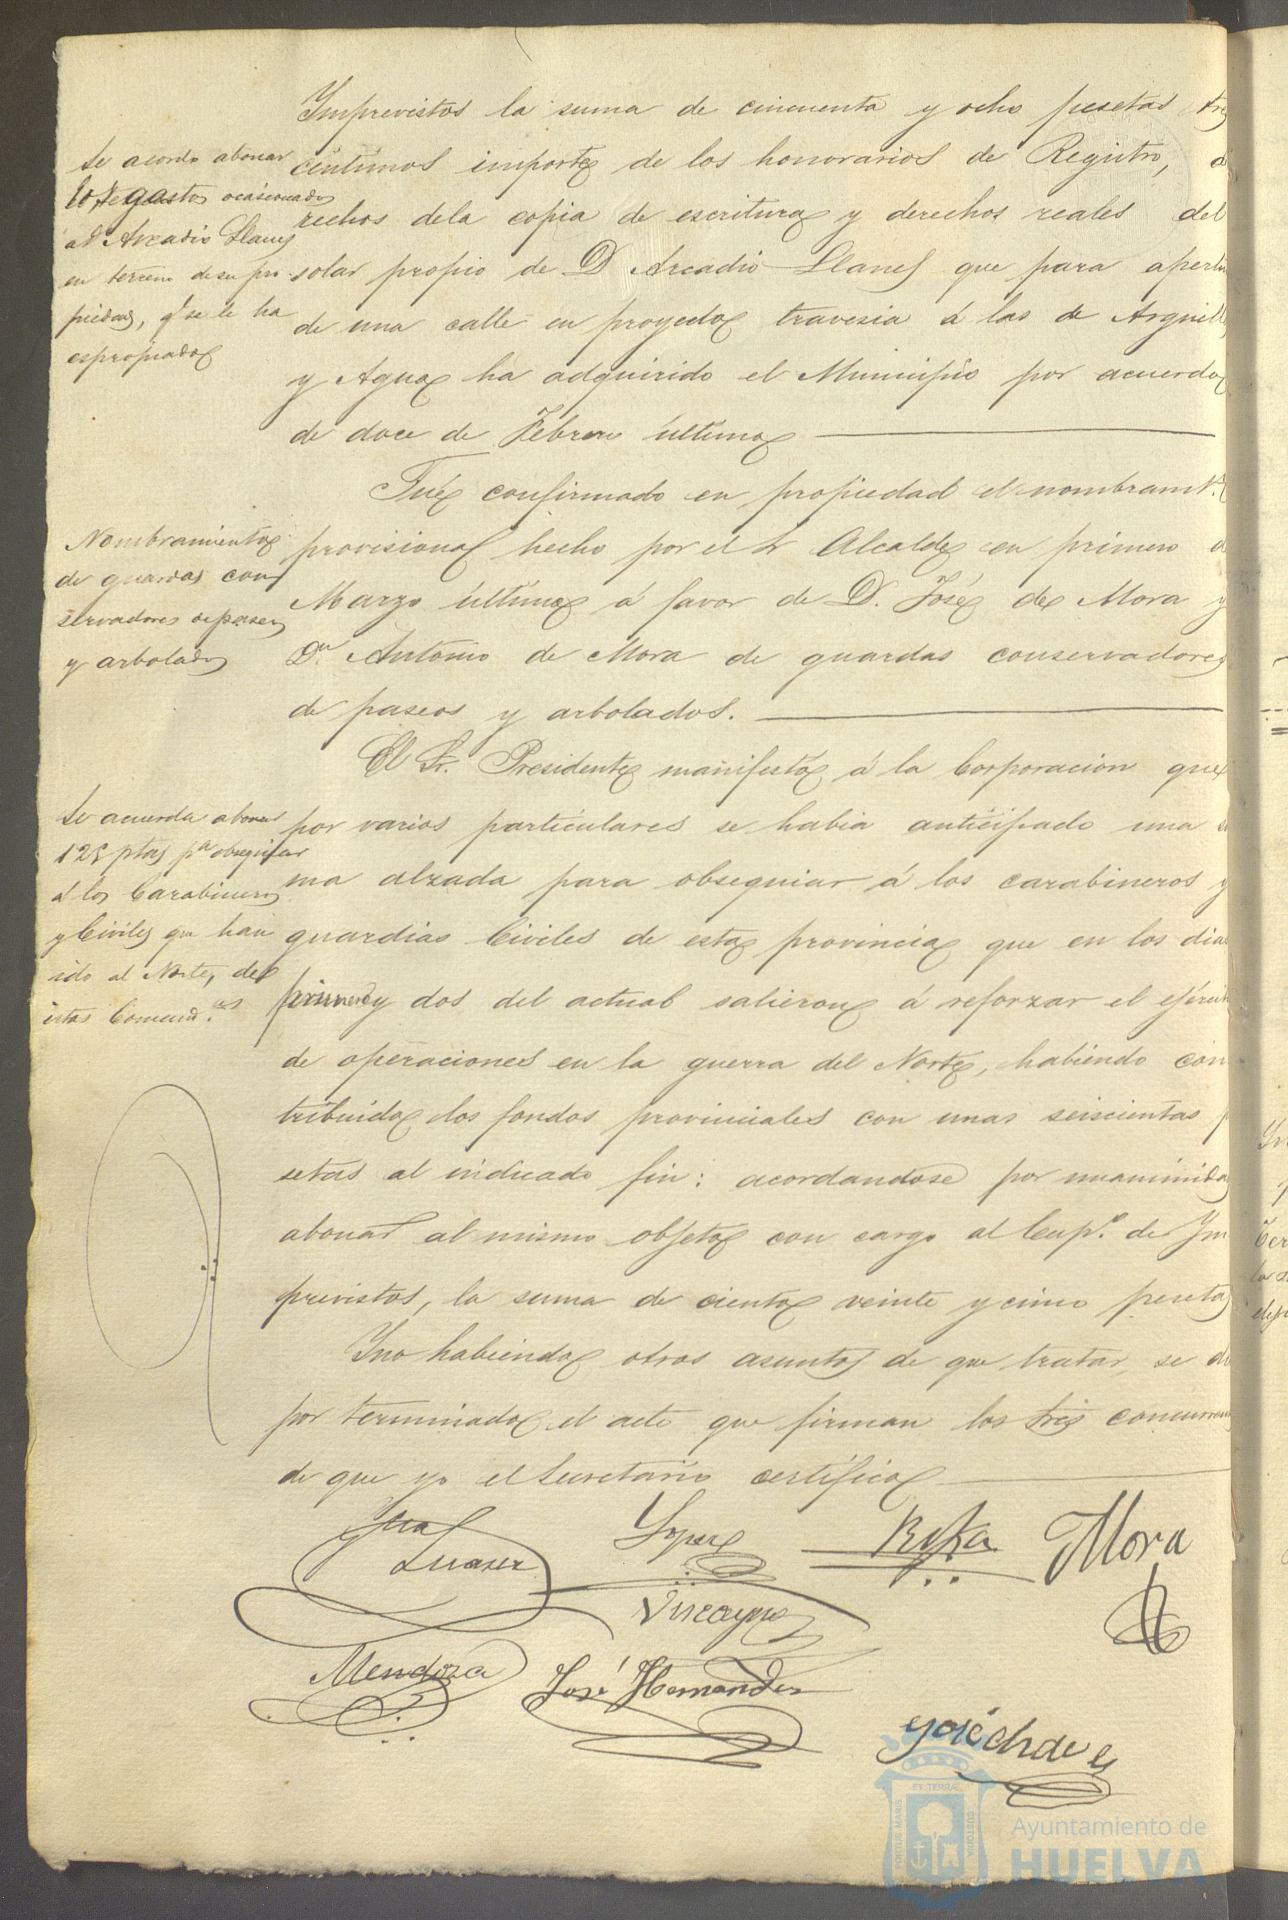 Imprevistos la suma de cincuenta y ocho pesetas tres
Se acordo abonar
los gastos ocasionados
a D Arcadio Llanes
en terreno de su pro
piedad, q. se le ha
espropiado
centimos importe de los honorarios de Registro, de
rechos dela copia de escritura y derechos reales del
solar propio de D Arcadio Llanes que para apertu
de una calle en proyecto travesia á las de Arguell
y Agua ha adquirido el Municipio por acuerdo
de doce de Febrero último
Fué confirmado en propiedad el nombramt.º
Nombramiento
de guardas con
servadores de paseos
y arbolados
provisional hecho por el Sr Alcalde en primero de
Marzo último á favor de D. José de Mora y
Dn Antonio de Mora de guardas conservadores
de paseos y arbolados.
El Sr. Presidente manifestó á la Corporacion que
Se acuerda abonar
125 ptas pa obsequiar
á los Carabineros
y Civiles que han
ido al Norte, de
estas Comand.as
por varios particulares se habia anticipado una su
ma alzada para obsequiar á los carabineros y
guardias Civiles de esta provincia que en los dias
primero y dos del actual salieron á reforzar el ejército
de operaciones en la guerra del Norte, habiendo con
tribuido los fondos provinciales con unas seiscientas p
setas al indicado fin: acordandose por unanimidad
abonar al mismo objeto con cargo al Cap.º de Im
previstos, la suma de ciento veinte y cinco pesetas
Y no habiendo otros asuntos de que tratar, se dió
por terminado el acto que firman los Sres concurren
de que yo el Secretario certifico
Suarez
Lopez
Mora
Vizcayno
Mendoza
José Hernandez
PORTUS MARIS ET TERRAE CUSTODIA
Ayuntamiento de
HUELVA